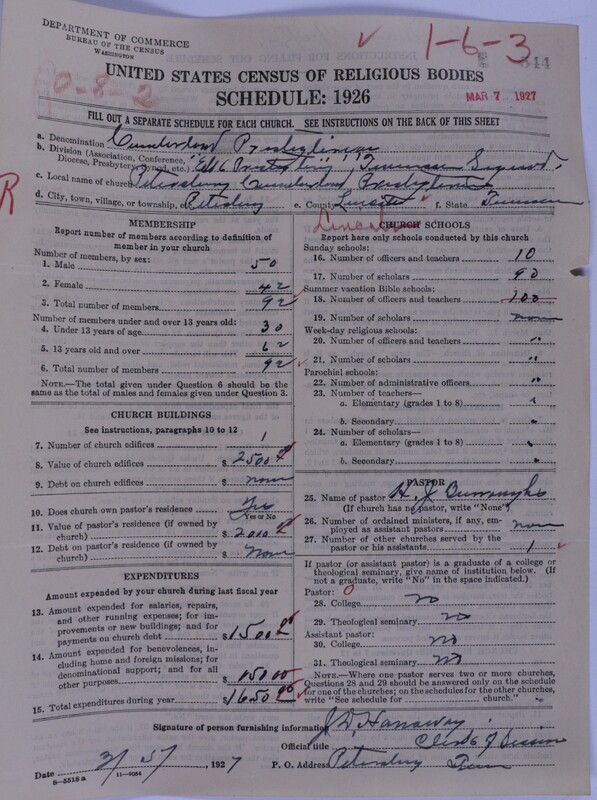 DEPARTMENT OF COMMERCE
BUREAU OF THE CENSUS
WASHINGTON
1-6-3
544
0-8-2
UNITED STATES CENSUS OF RELIGIOUS BODIES
MAR 7 1927
SCHEDULE: 1926
FILL OUT A SEPARATE SCHEDULE FOR EACH CHURCH. SEE INSTRUCTIONS ON THE BACK OF THIS SHEET
a. Denomination Cumberland Presbyterian
b. Division (Association, Conference, Diocese, Presbytery, Synod, etc.) Elk Presbytery Tennessee Synod
c. Local name of church Petersburg Cumberland Presbyterian
d. City, town, village, or township, etc. Petersburg e. County Lincoln f. State Tennessee
R
Lincoln
MEMBERSHIP
Report number of members according to definition of member in your church
Number of members, by sex:
1. Male 50
2. Female 42
3. Total number of members 92
Number of members under and over 13 years old:
4. Under 13 years of age 30
5. 13 years old and over 62
6. Total number of members 92
NOTE.—The total given under Question 6 should be the same as the total of males and females given under Question 3.
CHURCH BUILDINGS
See instructions, paragraphs 10 to 12
7. Number of church edifices 1
8. Value of church edifices $ 2500
9. Debt on church edifices $ none
10. Does church own pastor's residence? Yes
Yes or No
11. Value of pastor's residence (if owned by church) $ 2000
12. Debt on pastor's residence (if owned by church) $ None
EXPENDITURES
Amount expended by your church during last fiscal year
13. Amount expended for salaries, repairs, and other running expenses; for improvements or new buildings; and for payments on church debt $ 1500
14. Amount expended for benevolences, including home and foreign missions; for denominational support; and for all other purposes $ 150 00
15. Total expenditures during year $ 1650 00
CHURCH SCHOOLS
Report here only schools conducted by this church
Sunday schools:
16. Number of officers and teachers 10
17. Number of scholars 90
Summer vacation Bible schools:
18. Number of officers and teachers 100
19. Number of scholars none
Week-day religious schools:
20. Number of officers and teachers "
21. Number of scholars "
Parochial schools:
22. Number of administrative officers "
23. Number of teachers—
a. Elementary (grades 1 to 8) "
b. Secondary "
24. Number of scholars—
a. Elementary (grades 1 to 8) "
b. Secondary "
PASTOR
25. Name of pastor H. J. Burroughs
(If church has no pastor, write "None")
26. Number of ordained ministers, if any, employed as assistant pastors none
27. Number of other churches served by the pastor or his assistants 1
If pastor (or assistant pastor) is a graduate of a college or theological seminary, give name of institution below. (If not a graduate, write "No" in the space indicated.)
Pastor: 0
28. College no
29. Theological seminary no
Assistant pastor:
30. College no
31. Theological seminary no
NOTE.—Where one pastor serves two or more churches, Questions 28 and 29 should be answered only on the schedule for one of the churches; on the schedules for the other churches, write "See schedule for church."
Signature of person furnishing information J. D. Hannaway
Official title Clerk of Session
Date 3/5th, 1927 P. O. Address Petersburg Tenn
8-5518a 11-9064